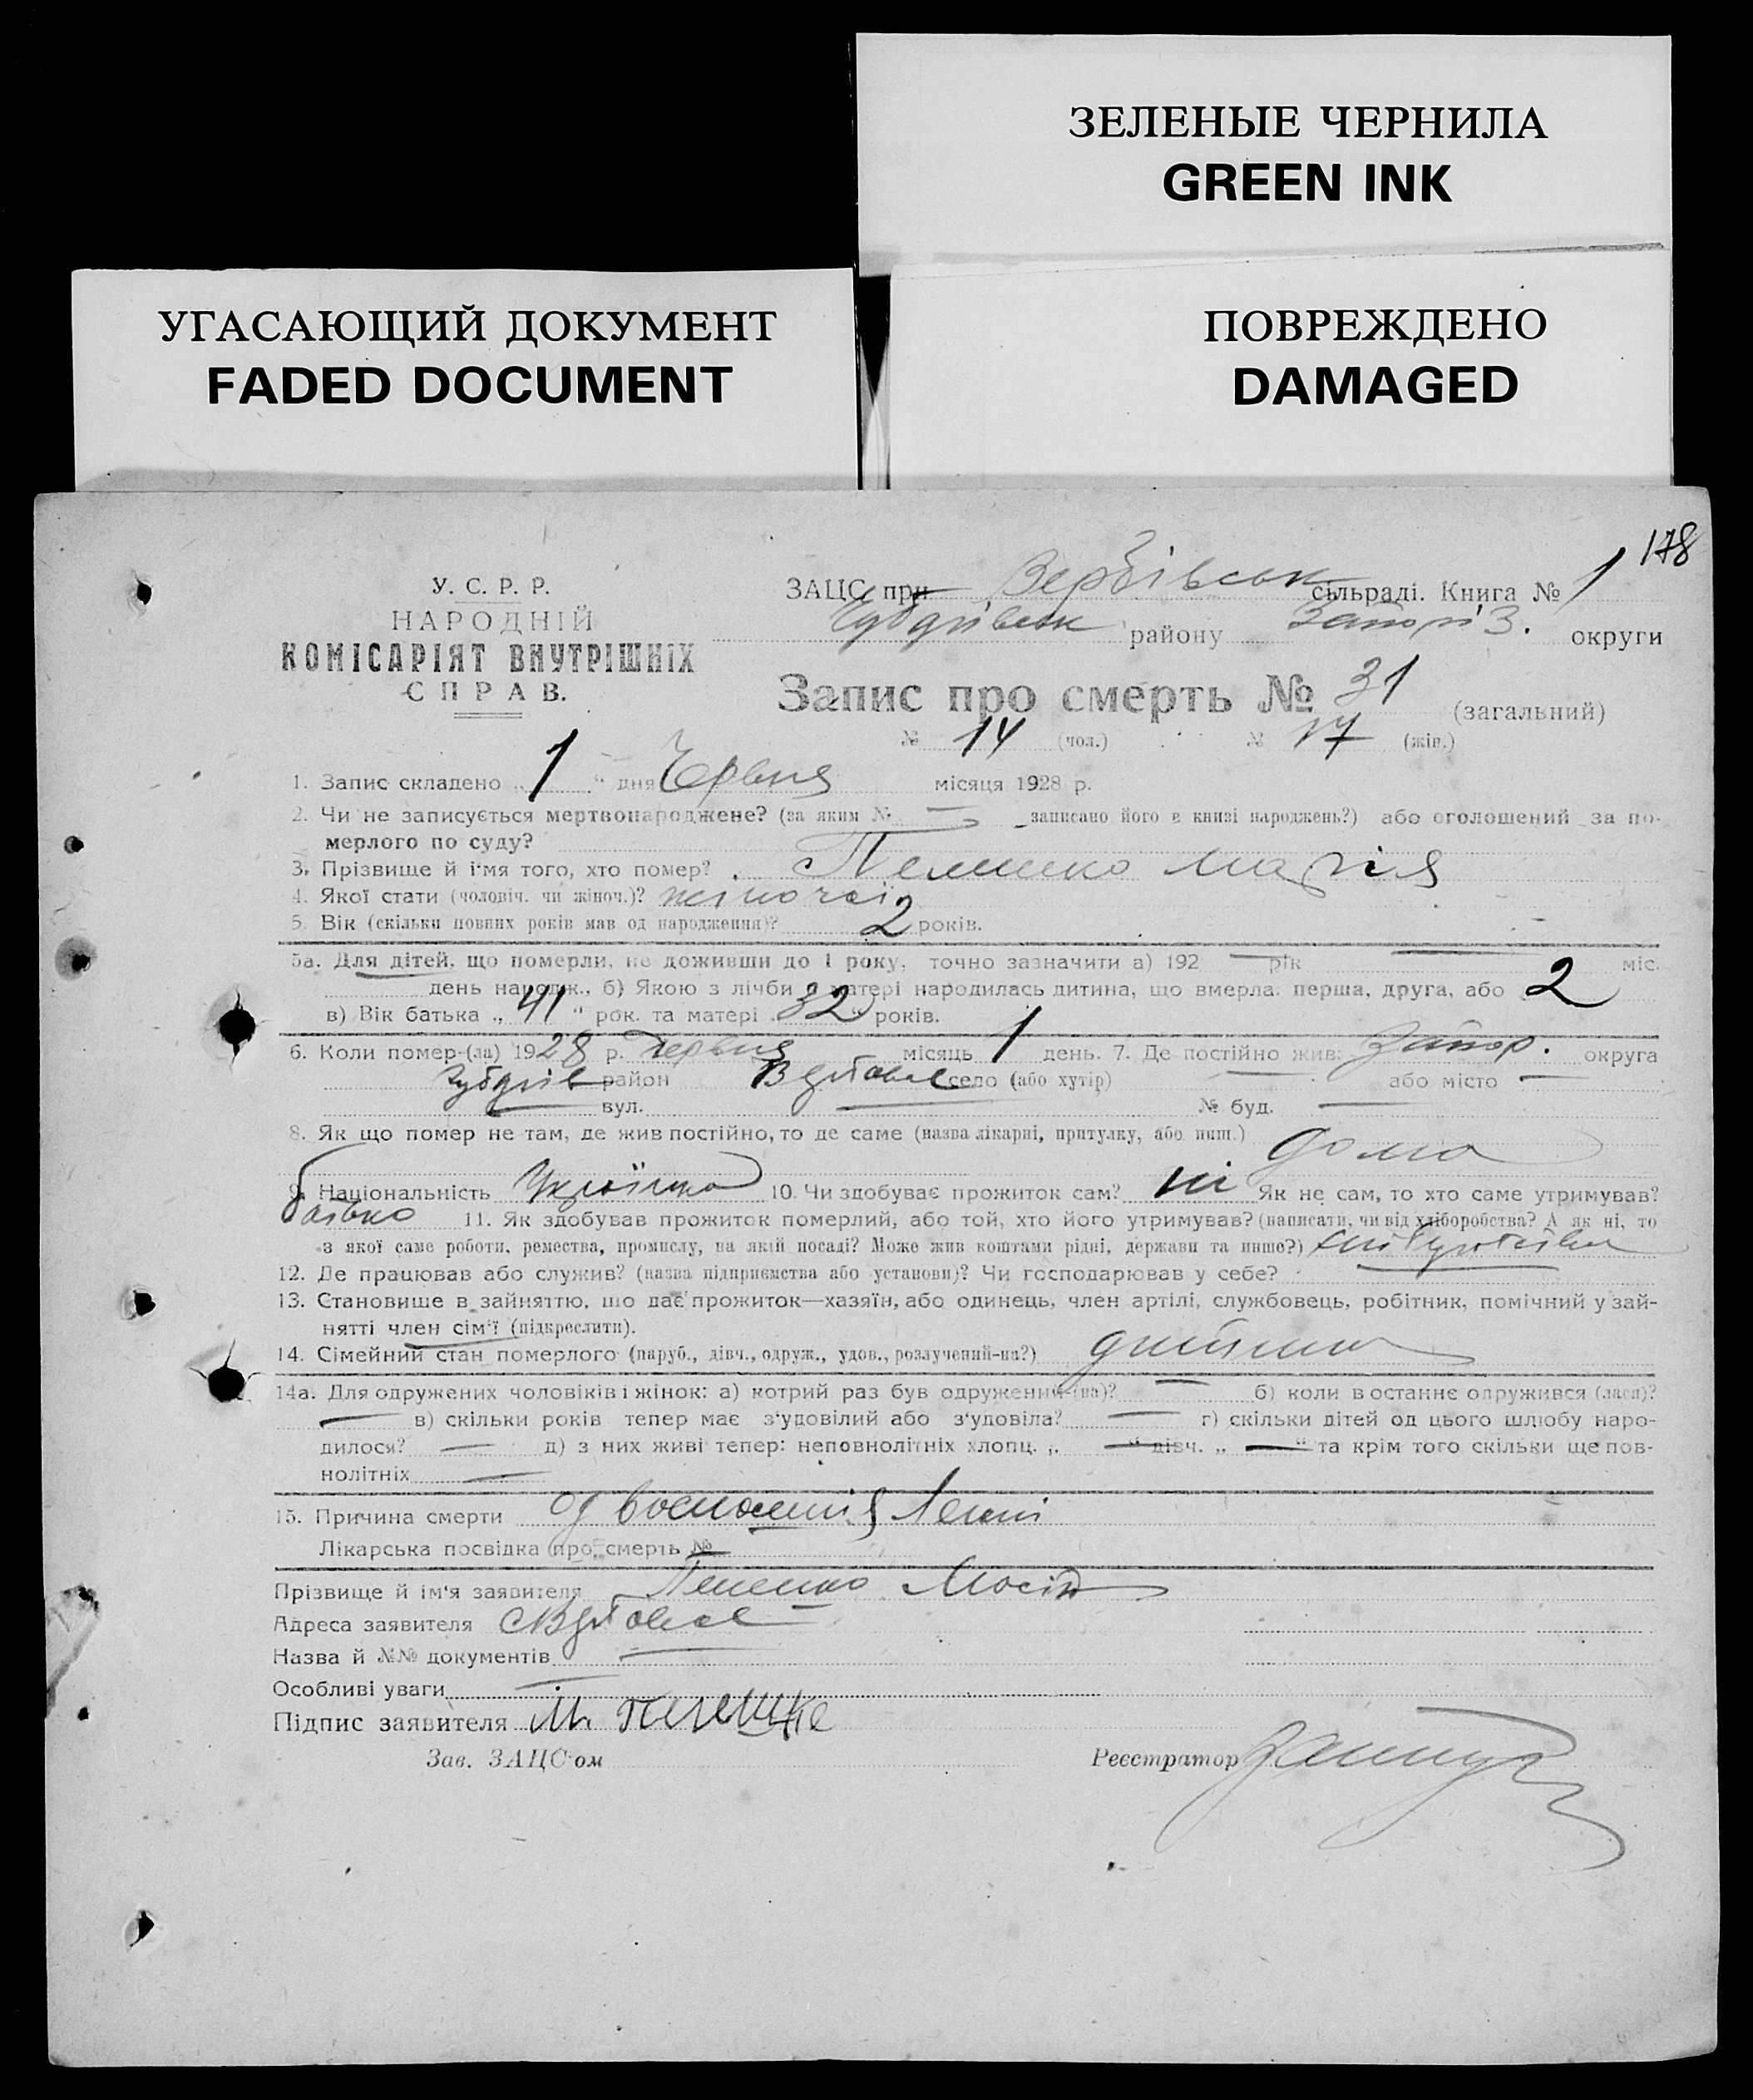 ЗЕЛЕНЫЕ ЧЕРНИЛА
GREEN INK
УГАСАЮЩИЙ ДОКУМЕНТ
FADED DOCUMENT
ПОВРЕЖДЕНО
DAMAGED
178
У. С. Р. Р.
НАРОДНІЙ
КОМІСАРІЯТ ВНУТРІШНІХ
СПРАВ.
ЗАЦС при Вербівськ сільраді. Книга № 1
району Запоріз. округи
Запис про смерть № 31 (загальний)
№ 14 (чол.) № 17 (жін.)
1. Запис складено „ 1 “ дня Червня місяця 1928 р.
2. Чи не записується мертвонароджене? (за яким № — записано його в книзі народжень?) або оголошений за по-
мерлого по суду?
3. Прізвище й ім'я того, хто помер? Марія
4. Якої стати (чоловіч. чи жіноч.)? жіночої
5. Вік (скільки повних років мав од народження)? 2 років.
5а. Для дітей, що померли, не доживши до 1 року, точно зазначити а) 192 — рік — міс.
день народж., б) Якою з лічби у матері народилась дитина, що вмерла: перша, друга, або 2
в) Вік батька „ 41 “ рок. та матері „ 32 “ років.
6. Коли помер-(ла) 1928 р. червня місяць 1 день. 7. Де постійно жив: Запор. округа
район село (або хутір) — або місто —
— вул. — № буд. —
8. Як що помер не там, де жив постійно, то де саме (назва лікарні, притулку, або инш.) дома
9. Національність Українка 10. Чи здобуває прожиток сам? ні Як не сам, то хто саме утримував?
батько 11. Як здобував прожиток померлий, або той, хто його утримував? (написати, чи від хліборобства? А як ні, то
з якої саме роботи, ремества, промислу, на якій посаді? Може жив коштами рідні, держави та инше?)
12. Де працював або служив? (назва підприємства або установи)? Чи господарював у себе?
13. Становище в зайняттю, що дає прожиток—хазяїн, або одинець, член артілі, службовець, робітник, помічний у зай-
нятті член сім'ї (підкреслити).
14. Сімейний стан померлого (паруб., дівч., одруж., удов., розлучений-на?) дитина
14а. Для одружених чоловіків і жінок: а) котрий раз був одружений-(на)? — б) коли востаннє одружився (лася)?
— в) скільки років тепер має з'удовілий або з'удовіла? — г) скільки дітей од цього шлюбу наро-
дилося? — д) з них живі тепер: неповнолітніх хлопц. „ — “ дівч. „ — “ та крім того скільки ще пов-
нолітніх —
15. Причина смерти од
Лікарська посвідка про смерть № —
Прізвище й ім'я заявителя
Адреса заявителя
Назва й №№ документів —
Особливі уваги —
Підпис заявителя М.
Зав. ЗАЦС'ом Реєстратор